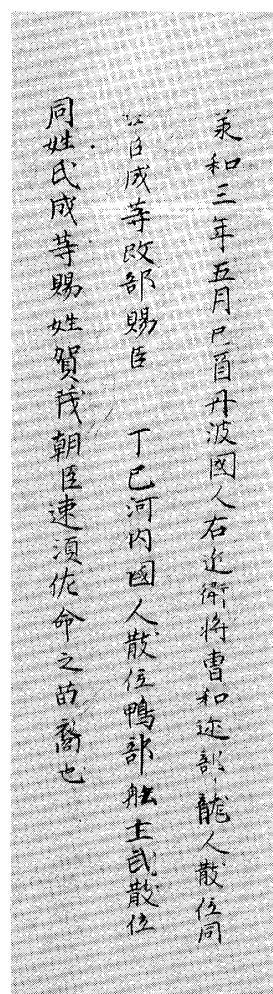 承和三年五月己酉丹波國人右近衛将曹和迩部龍人散位同
臣成等改部賜臣 丁巳河内國人散位鴨部舩主氏散位
同姓氏成等賜姓賀茂朝臣速須佐命之苗裔也